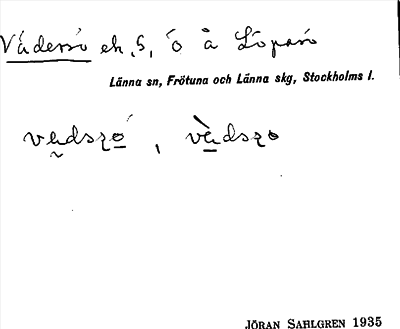 Vädersö ek, S, ö å Löparö
Länna sn, Frötuna och Länna skg, Stockholms l.
vädszö, vädszo
JÖRAN SAHLGREN 1935